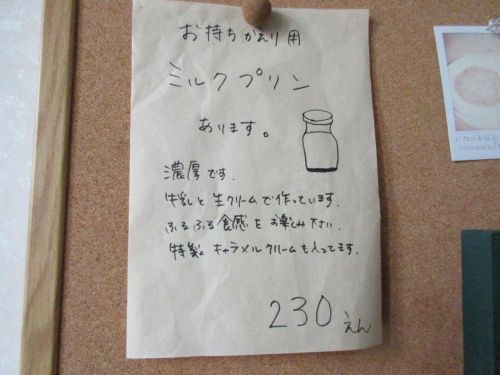 お持ちかえり用
ミルクプリン
あります。
濃厚です.
牛乳と生クリームで作っています.
ふるふる食感をお楽しみ下さい.
特製キャラメルクリームも入ってます.
230えん